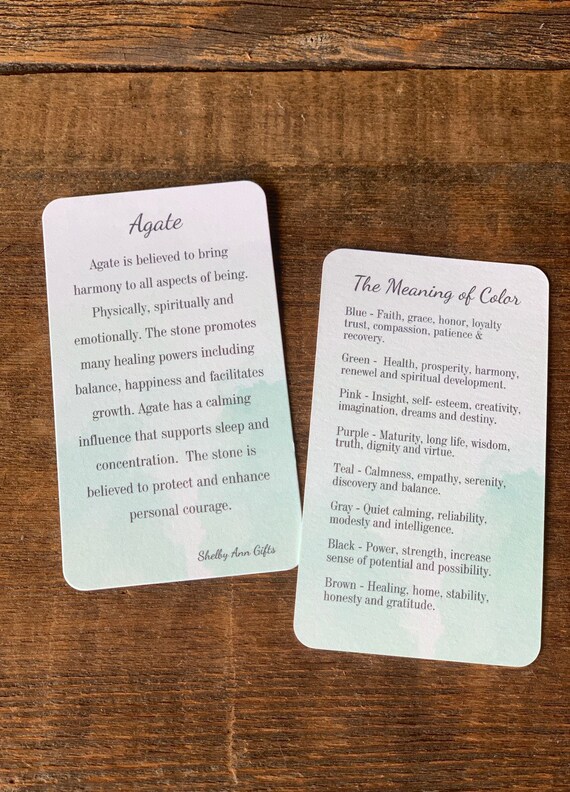 Agate
Agate is believed to bring
harmony to all aspects of being.
Physically, spiritually and
emotionally. The stone promotes
many healing powers including
balance, happiness and facilitates
growth. Agate has a calming
influence that supports sleep and
concentration. The stone is
believed to protect and enhance
personal courage.
Shelby Ann Gifts
The Meaning of Color
Blue - Faith, grace, honor, loyalty
trust, compassion, patience &
recovery.
Green - Health, prosperity, harmony,
renewel and spiritual development.
Pink - Insight, self- esteem, creativity,
imagination, dreams and destiny.
Purple - Maturity, long life, wisdom,
truth, dignity and virtue.
Teal - Calmness, empathy, serenity,
discovery and balance.
Gray - Quiet calming, reliability,
modesty and intelligence.
Black - Power, strength, increase
sense of potential and possibility.
Brown - Healing, home, stability,
honesty and gratitude.